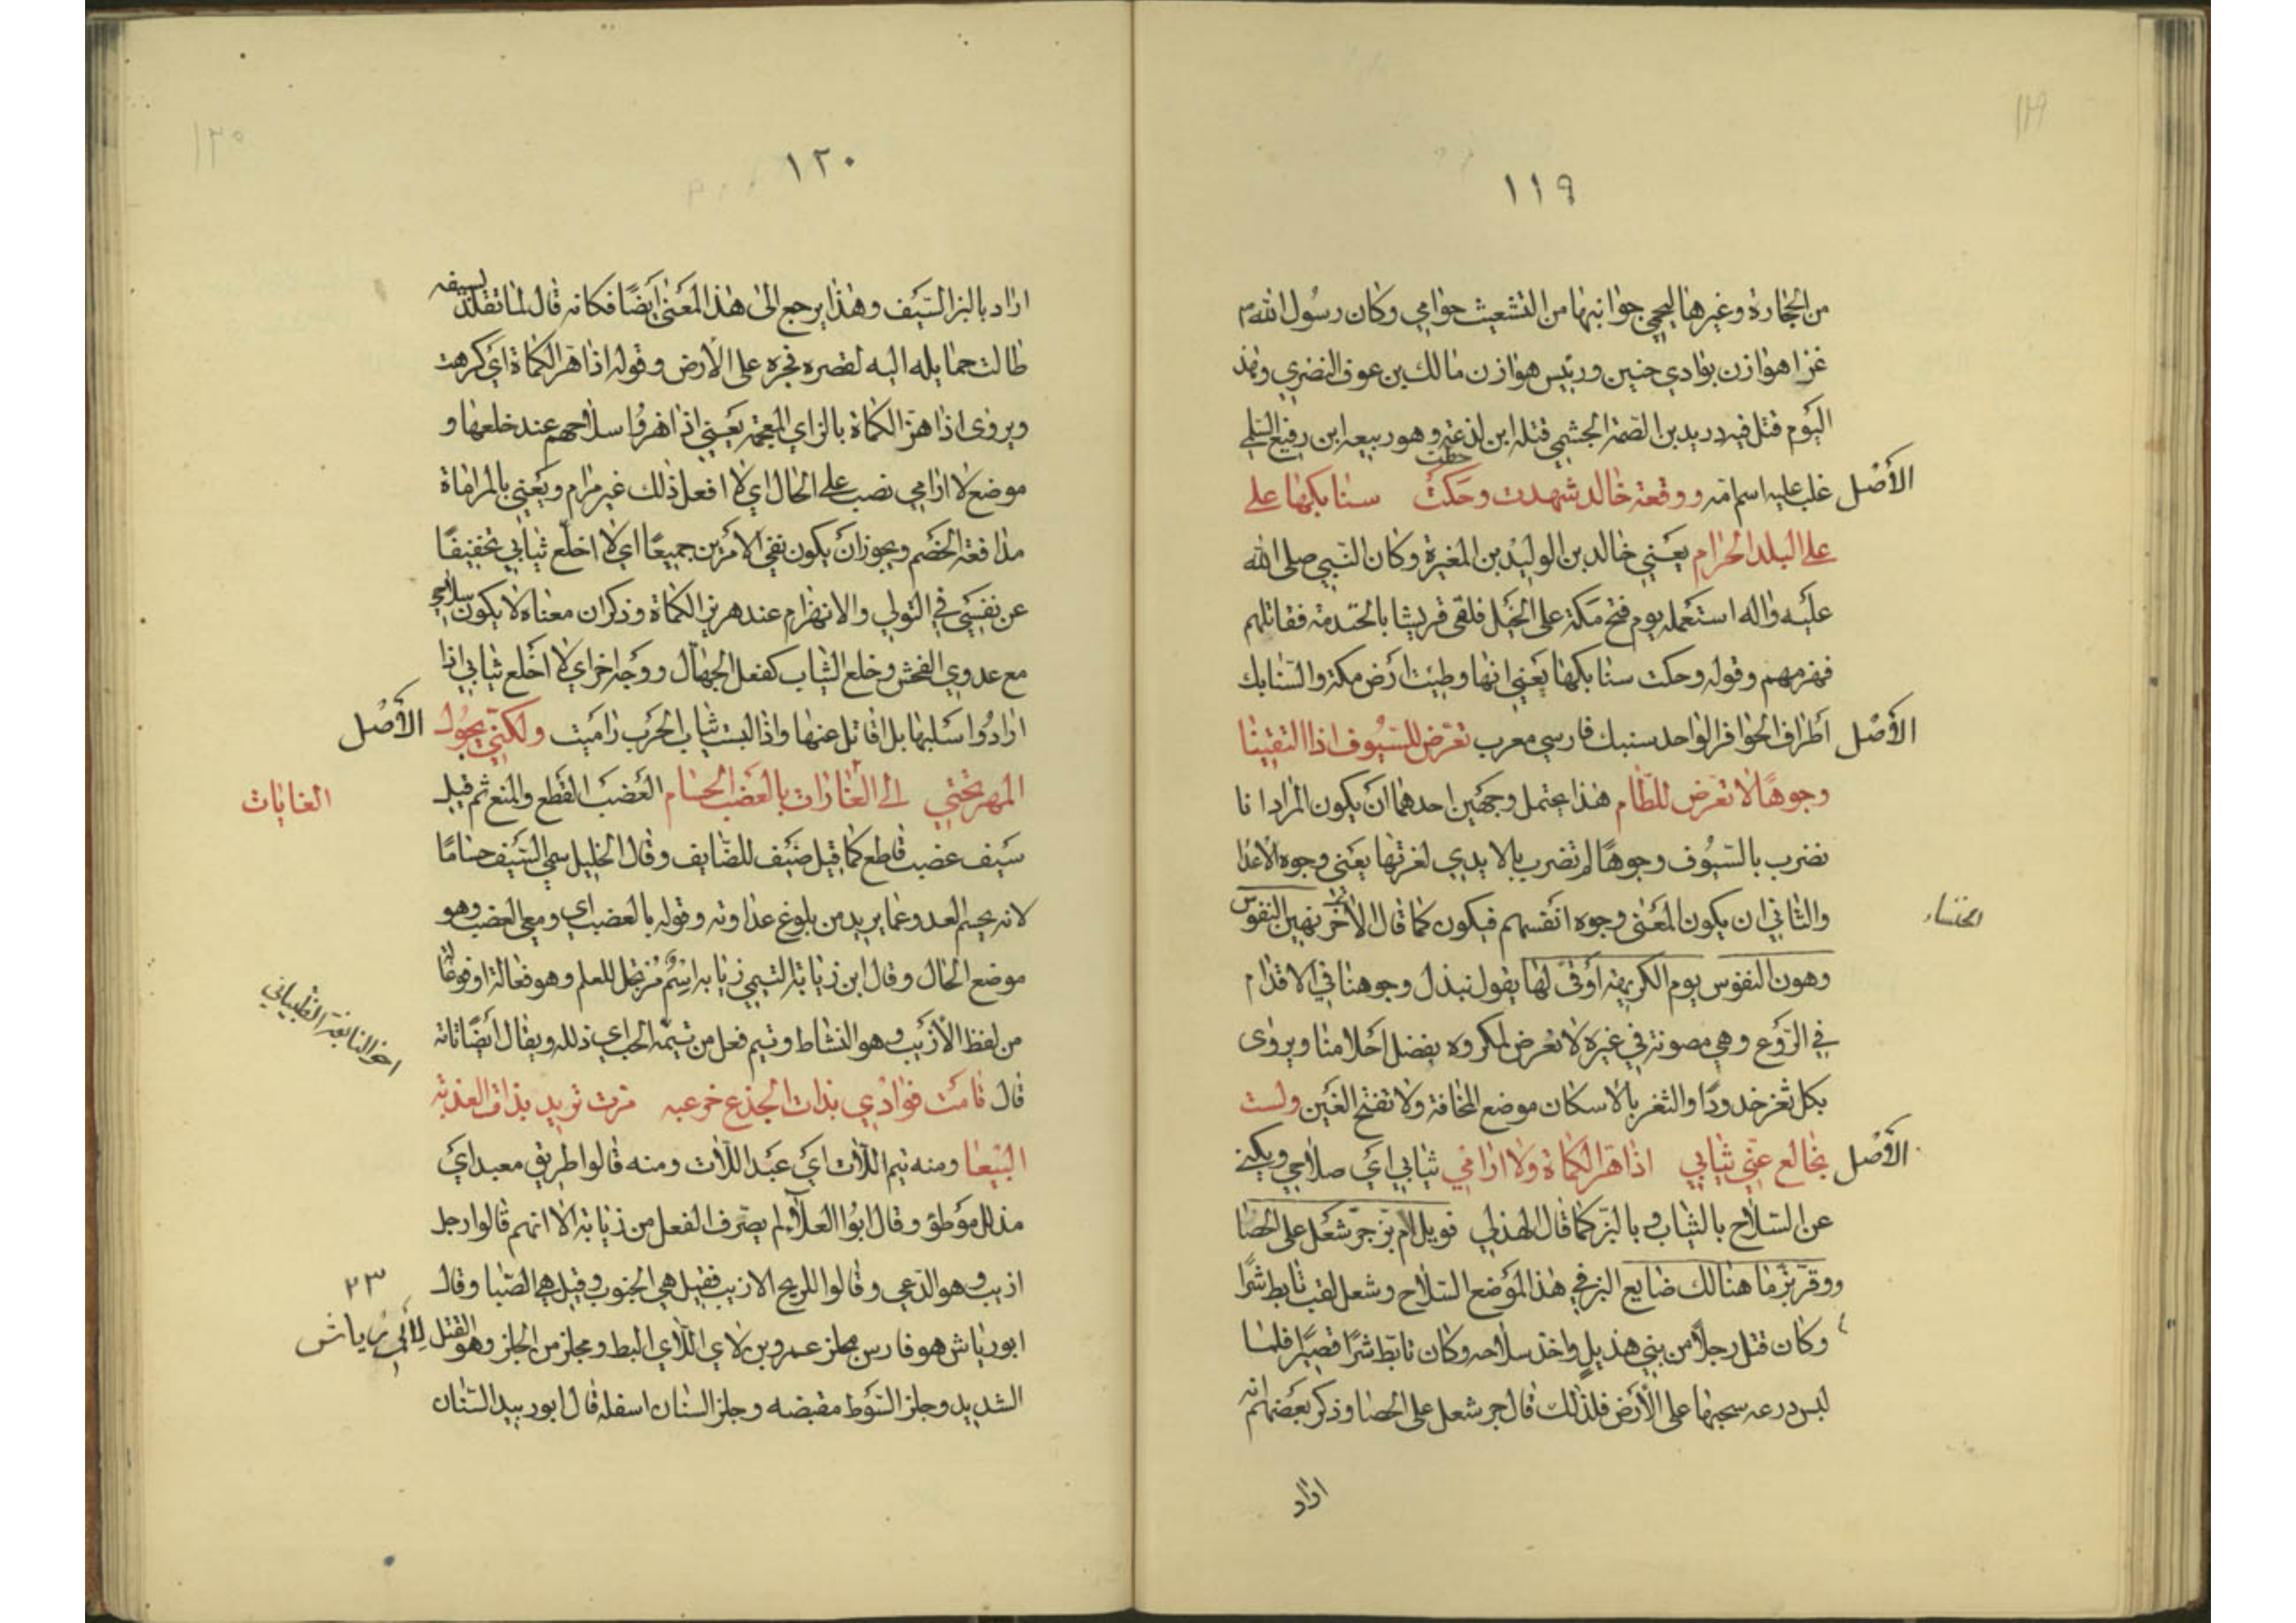 ١١٩
من الحجارة وغيرها ليحمي جوانبها من التشعيث حوامي وكان رسول الله ص
غزا هوازن بوادي حنين ورئيس هوازن مالك بن عوف النضري وهذ
اليوم قتل فيه دريد بن الصمة الجشمي قتله ابن لذعته وهو ربيعه ابن رفيع السلمي
الأصل
غلب عليه اسم امه ووقعة خالد شهدت وحكت سنابكها على
على البلد الحرام يعني خالد بن الوليد بن المغيرة وكان النبي صلى الله
عليه واله استعمله يوم فتح مكة على الخيل فلقى قريشا بالخندمة فقاتلهم
فهزمهم وقوله وحكت سنابكها يعني انها وطيت ارض مكة والسنابك
الأصل
أطراف الحوافر الواحد سنبك فارسي معرب نعرّض للسيوف اذا التقينا
وجوهًا لا تعرض للطام هذا يحتمل وجهين احدهما ان يكون المراد انا
نضرب بالسيوف وجوهًا لم تضرب بالايدي لعزتها يعني وجوه الاعدا
والثاني ان يكون المعنى وجوه انفسهم فيكون كما قال الأخر نهين النفوس
الخنساء
وهون النفوس يوم الكريهة أوقى لها يقول نبذل وجوهنا في الاقدام
في الروع وهي مصونة في غيره لا تعرض لمكروه بفضل أحلامنا ويروى
بكل ثغر خدودًا والثغر بالاسكان موضع المخافة ولا تفتح الغين ولست
الأصل
بخالع عني ثيابي اذا هر الكماة ولا ارامي ثيابي أي صلاحي ويكنى
عن السلاح بالثياب وبالبز كما قال الهذلي فويل ام بز جر شعل على الحصا
ووقر بز ما هنالك ضايع البز في هذا الموضع السلاح وشعل لقب تابط شرًا
وكان قتل رجلاً من بني هذيل واخذ سلاحه وكان تابط شرًا قصيرًا فلما
لبس درعه سحبها على الأرض فلذلك قال جر شعل على الحصا وذكر بعضهم انه
اراد
١٢٠
اراد بالبز السيف وهذا يرجع الى هذا المعنى أيضًا فكانه قال لما تقلد بسيفه
طالت حمايله اليه لقصره فجره على الأرض وقوله اذا هر الكماة أي كرهت
ويروى اذا هز الكماة بالزاي المعجمة يعني اذا هزوا سلاحهم عند خلعها و
موضع لا ارامي نصب على الحال اي لا افعل ذلك غير مرام ويعني بالمراماة
مدافعة الخصم ويجوز ان يكون نفي الامرين جميعًا اي لا اخلع ثيابي تخفيفًا
عن نفسي في التولي والانهزام عند هرير الكماة وذكر ان معناه لا يكون سلاحي
مع عدوي الفحش وخلع الثياب كفعل الجهال ووجه اخر اي لا اخلع ثيابي اذا
ارادوا سلبها بل اقاتل عنها واذا لبست ثياب الحرب راميت ولكني يجول
الأصل
المهر تحتي الى الغارات بالعضب الحسام العضب القطع والمنع ثم قيل
الغايات
سيف عضب قاطع كما قيل ضيف للضايف وقال الخليل سمي السيف حسامًا
لانه يحسم العدو عما يريد من بلوغ عداوته وقوله بالعضب اي ومعي العضب وهو
موضع الحال وقال ابن زيابة التيمي زيابه اسم مرتجل للعلم وهو فعالة او فوعالة
من لفظ الأزيب وهو النشاط وتيم فعل من تيمه الحب اي ذلله ويقال أيضًا تامه
اخو النابغة الذبياني
قال قامت فوادي بذات الجذع خرعبه مرت تريد بذات العذبة
البيعا ومنه تيم اللات أي عبد اللات ومنه قالوا طريق معبد أي
مذلل موطؤ وقال ابوا العلآء لم يصرف الفعل من زيابة الا انهم قالوا رجل
ازيب وهو الدعي وقالوا للريح الازيب فقيل هي الجنوب وقيل هي الصبا وقال
٢٣
ابو رياش هو فارس مجلز عمرو بن لاي اللآي البط ومجلز من الجلز وهو الفتل
لأبي رياش
الشديد وجلز السوط مقبضه وجلز السنان اسفله قال ابو ربيد السنان